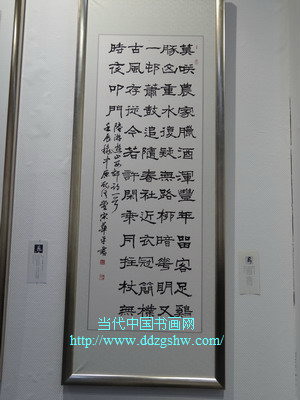 莫咲農家臘酒渾豐年留客足鷄
豚山重水複疑無路柳暗華明又
一邨蕭鼓追隨春社近衣冠簡樸
古風存從今若許閑乘月拄杖無
時夜叩門
陸游遊山西邨詩一首
当代中国书画网
www.ddzgshw.com